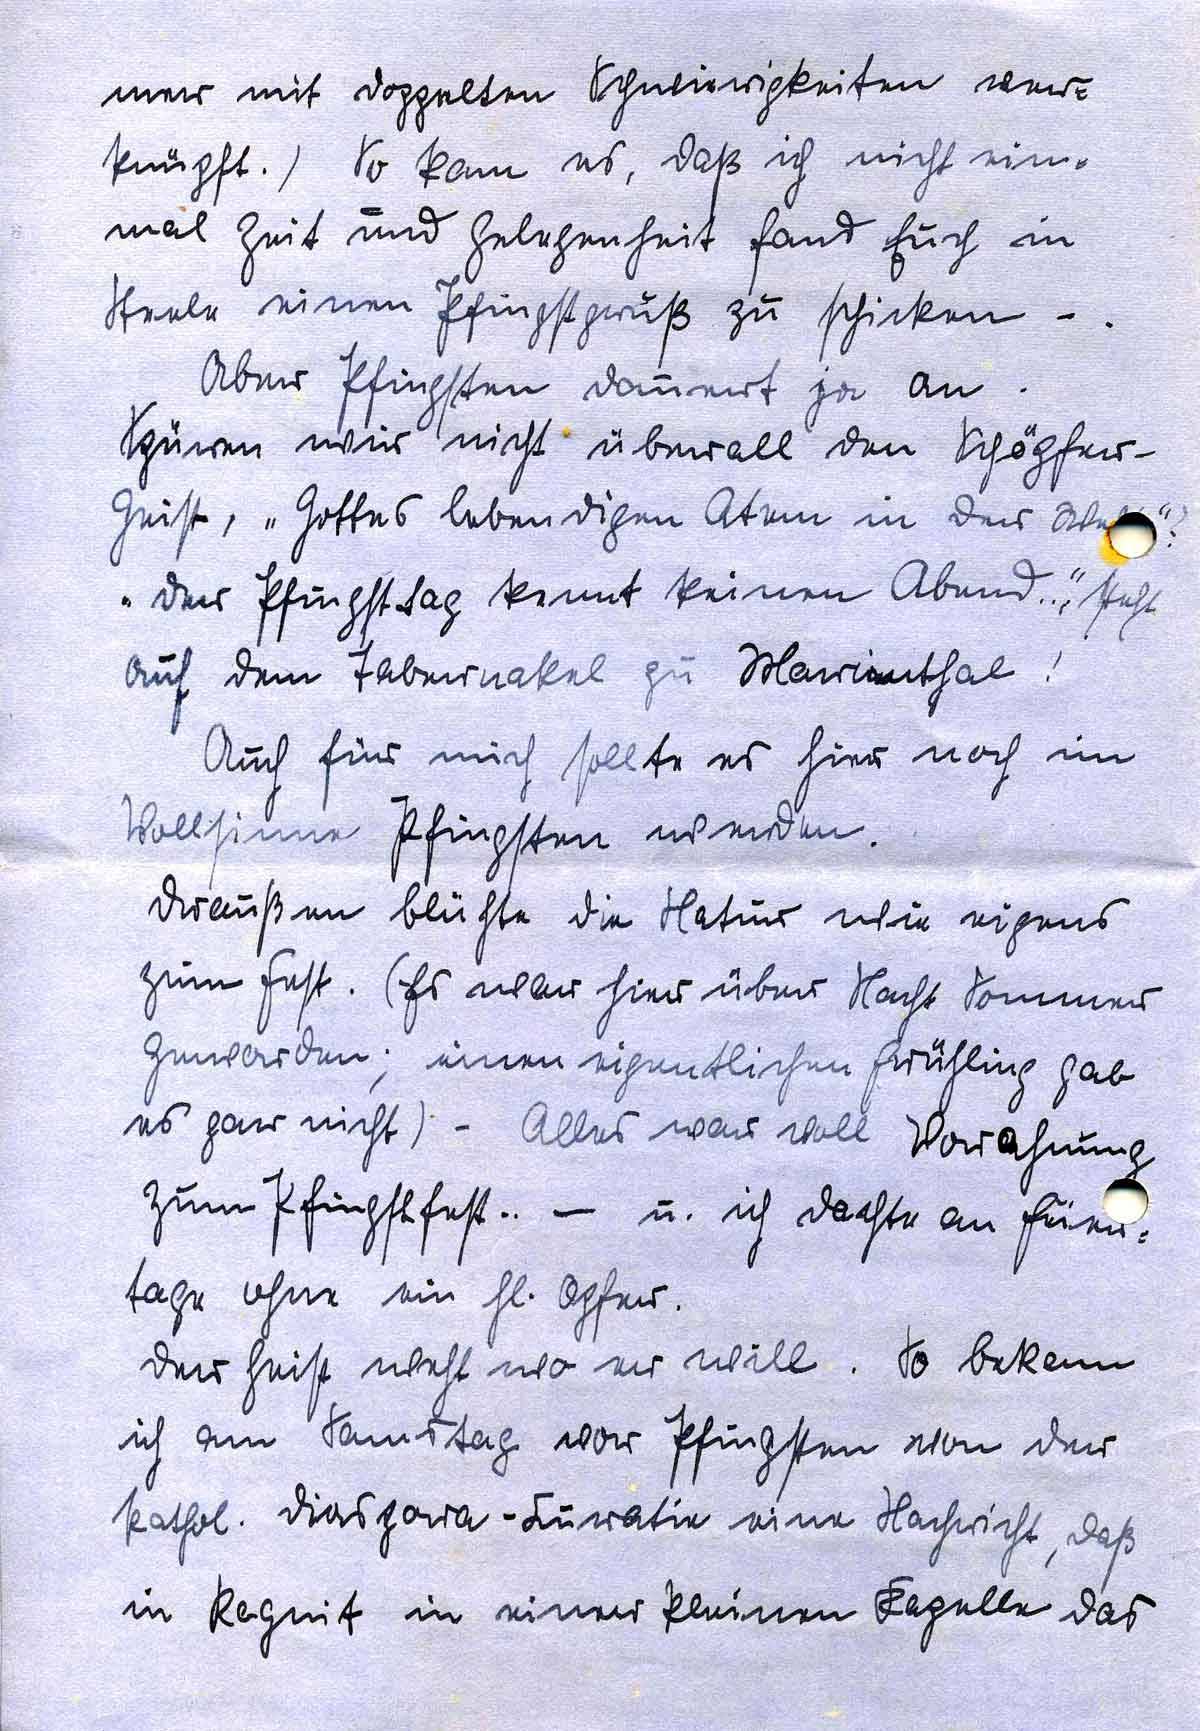 mer mit doppelten Schwierigkeiten ver=
knüpft.) So kam es, daß ich nicht ein=
mal Zeit und Gelegenheit fand Euch in
Steele einen Pfingstgruß zu schicken - .
Aber Pfingsten dauert ja an .
Spüren wir nicht überall den Schöpfer-
Geist, „Gottes lebendigen Atem in der Welt“?
„Der Pfingsttag kennt keinen Abend..“, steht
auf dem Tabernakel zu Marienthal !
Auch für mich sollte es hier noch im
Vollsinne Pfingsten werden.
Draußen blühte die Natur wie eigens
zum Fest. (Es war hier über Nacht Sommer
geworden; einen eigentlichen Frühling gab
es gar nicht) - Alles war voll Vorahnung
zum Pfingstfest.. — u. ich dachte an Feier=
tage ohne ein hl. Opfer.
Der Geist weht wo er will . So bekam
ich am Samstag vor Pfingsten von der
kathol. Diaspora-Kuratie eine Nachricht, daß
in Ragnit in einer kleinen Kapelle das